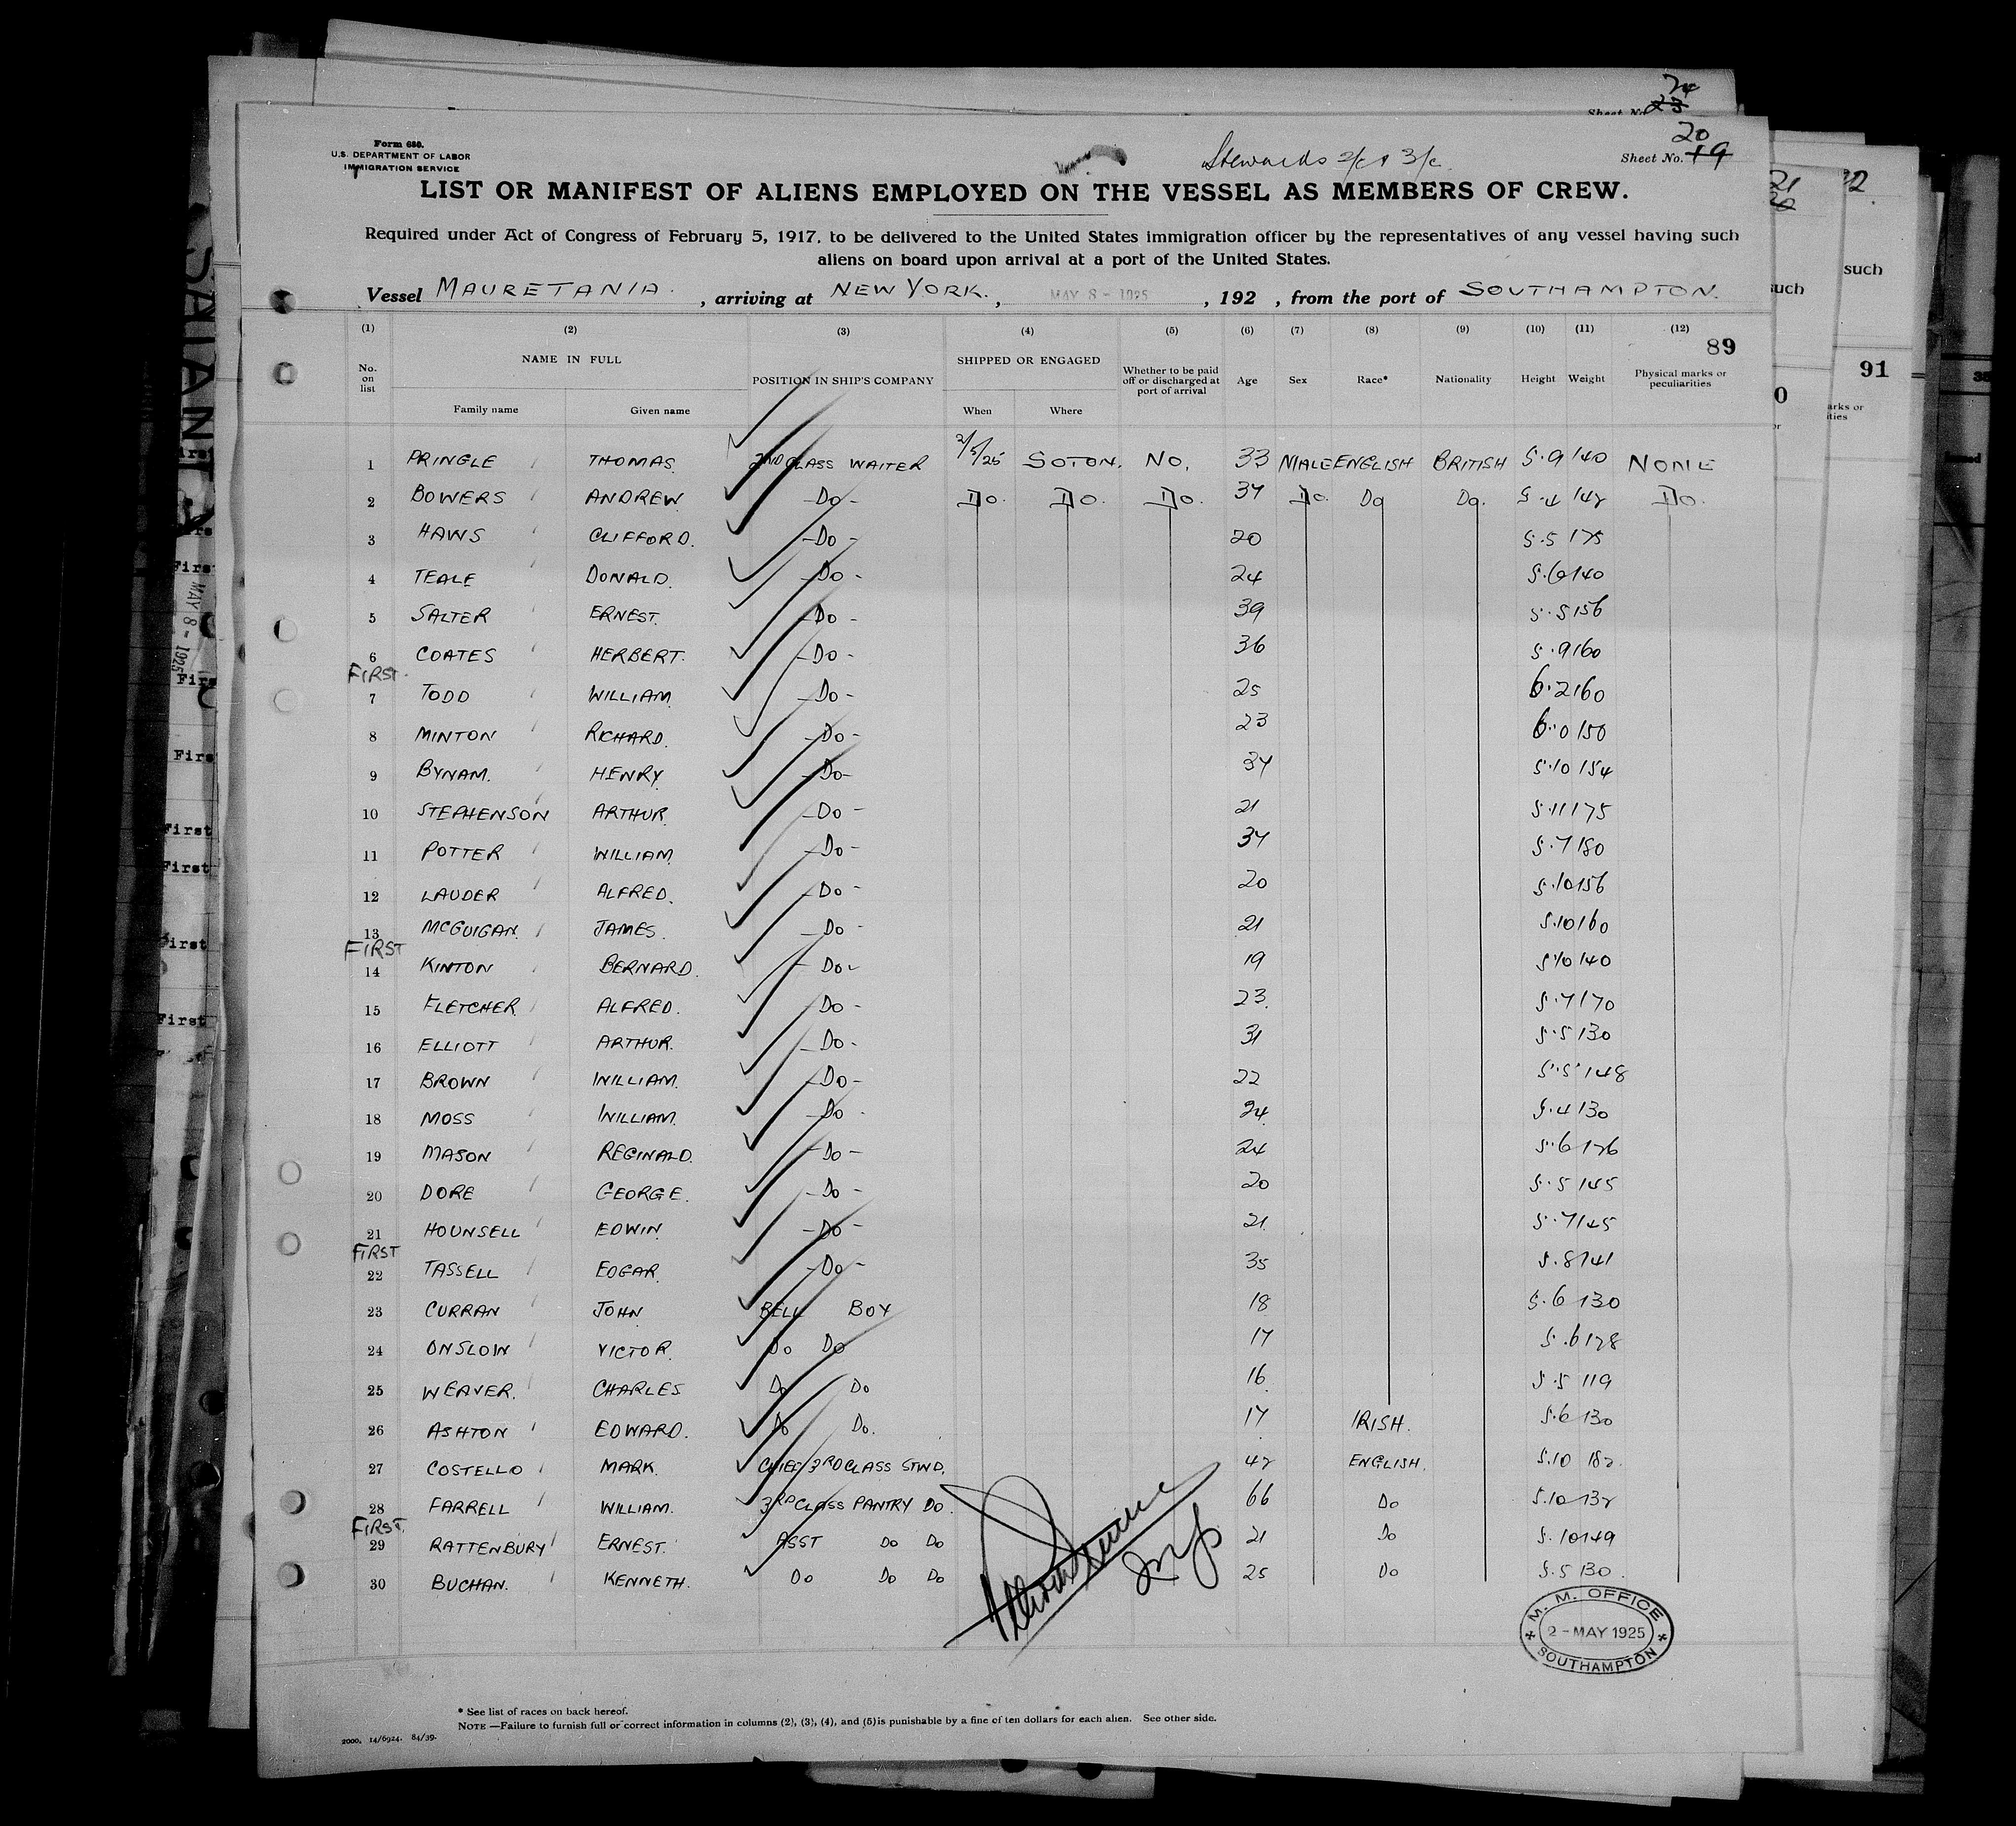 24
Sheet No. 23
Form 680.
U.S. DEPARTMENT OF LABOR
IMMIGRATION SERVICE
Stewards 2/c & 3/c
20
Sheet No. 19
LIST OR MANIFEST OF ALIENS EMPLOYED ON THE VESSEL AS MEMBERS OF CREW.
Required under Act of Congress of February 5, 1917, to be delivered to the United States immigration officer by the representatives of any vessel having such
aliens on board upon arrival at a port of the United States.
Vessel MAURETANIA. , arriving at NEW YORK. , MAY 8 - 1925 , 192 , from the port of SOUTHAMPTON.
(1) (2) (3) (4) (5) (6) (7) (8) (9) (10) (11) (12)
89
No. on list NAME IN FULL POSITION IN SHIP'S COMPANY SHIPPED OR ENGAGED Whether to be paid off or discharged at port of arrival Age Sex Race* Nationality Height Weight Physical marks or peculiarities
Family name Given name When Where
1 PRINGLE THOMAS. 2ND CLASS WAITER 2/5/25 SOTON. NO. 33 MALE ENGLISH BRITISH 5.9 140 NONE
2 BOWERS ANDREW. -Do- Do. Do. Do. 37 Do. Do Do. 5.4 142 Do.
3 HAWS CLIFFORD. -Do- 20 5.5 175
4 TEALE DONALD. -Do- 24 5.6 140
5 SALTER ERNEST. -Do- 39 5.5 156
6 COATES HERBERT. -Do- 36 5.9 160
FIRST.
7 TODD WILLIAM. -Do- 25 6.2 160
8 MINTON RICHARD. -Do- 23 6.0 150
9 BYNAM. HENRY. -Do- 37 5.10 154
10 STEPHENSON ARTHUR. -Do- 21 5.11 175
11 POTTER WILLIAM. -Do- 37 5.7 180
12 LAUDER ALFRED. -Do- 20 5.10 156
13 MCGUIGAN. JAMES. -Do- 21 5.10 160
FIRST
14 KINTON BERNARD. -Do- 19 5.10 140
15 FLETCHER. ALFRED. Do- 23. 5.7 170
16 ELLIOTT ARTHUR. -Do- 31 5.5 130
17 BROWN WILLIAM. -Do- 22 5.5 148
18 MOSS WILLIAM. -Do- 24. 5.4 130
19 MASON REGINALD. -Do- 24 5.6 126
20 DORE GEORGE. -Do- 20 5.5 145
21 HOUNSELL EDWIN. -Do- 21. 5.7 145
FIRST
22 TASSELL EDGAR. -Do- 35 5.8 141
23 CURRAN JOHN BELL BOY 18 5.6 130
24 ONSLOW VICTOR. Do Do 17 5.6 128
25 WEAVER. CHARLES Do Do 16. 5.5 119
26 ASHTON EDWARD. Do Do. 17. IRISH. 5.6 130
27 COSTELLO MARK. CHIEF 3RD CLASS STWD. 42 ENGLISH. 5.10 182.
28 FARRELL WILLIAM. 3RD CLASS PANTRY DO. 66 Do 5.10 132
FIRST.
29 RATTENBURY ERNEST. ASST Do Do 21 Do 5.10 149
30 BUCHAN. KENNETH. Do Do Do 25 Do 5.5 130.
M. M. OFFICE
2 - MAY 1925
SOUTHAMPTON
* See list of races on back hereof.
NOTE —Failure to furnish full or correct information in columns (2), (3), (4), and (5) is punishable by a fine of ten dollars for each alien. See other side.
2000. 14/6924. 84/39.
21
22
such
such
91
MAY 8 - 1925
First
First
First
First
First
First
First